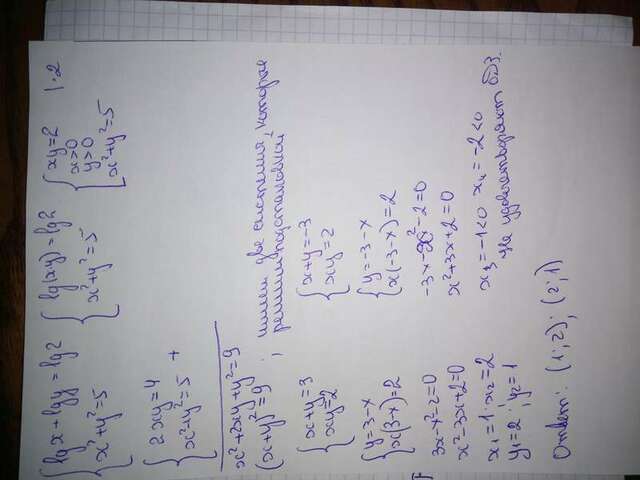 lg x + lg y = lg 2   lg(xy) = lg 2   xy = 2   | · 2
x² + y² = 5   x² + y² = 5   x > 0
y > 0
x² + y² = 5
2xy = 4
x² + y² = 5   +
x² + 2xy + y² = 9
(x + y)² = 9 ; имеем две системы, которые
решим подстановкой
x + y = 3   x + y = -3
xy = 2   xy = 2
y = 3 - x   y = -3 - x
x(3 - x) = 2   x(-3 - x) = 2
3x - x² - 2 = 0   -3x - x² - 2 = 0
x² - 3x + 2 = 0   x² + 3x + 2 = 0
x₁ = 1 ; x₂ = 2   x₃ = -1 < 0   x₄ = -2 < 0
y₁ = 2 ; y₂ = 1   Не удовлетворяют ОДЗ.
Ответ: (1; 2); (2; 1)